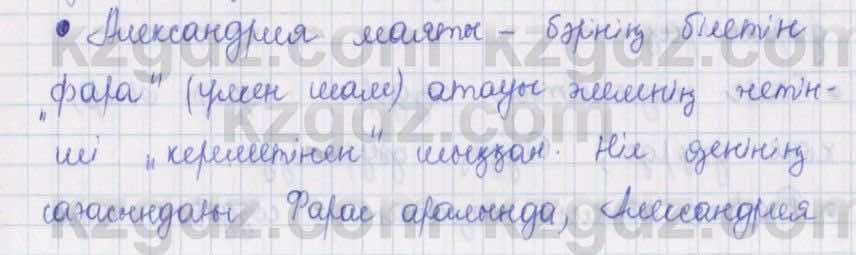 • Александрия маяты – бәрінің білетін
„фара" (үлкен шам) атауы әлемнің жетін-
ші „кереметінен" шыққан. Ніл өзенінің
сағасындағы Фарас аралында, Александрия